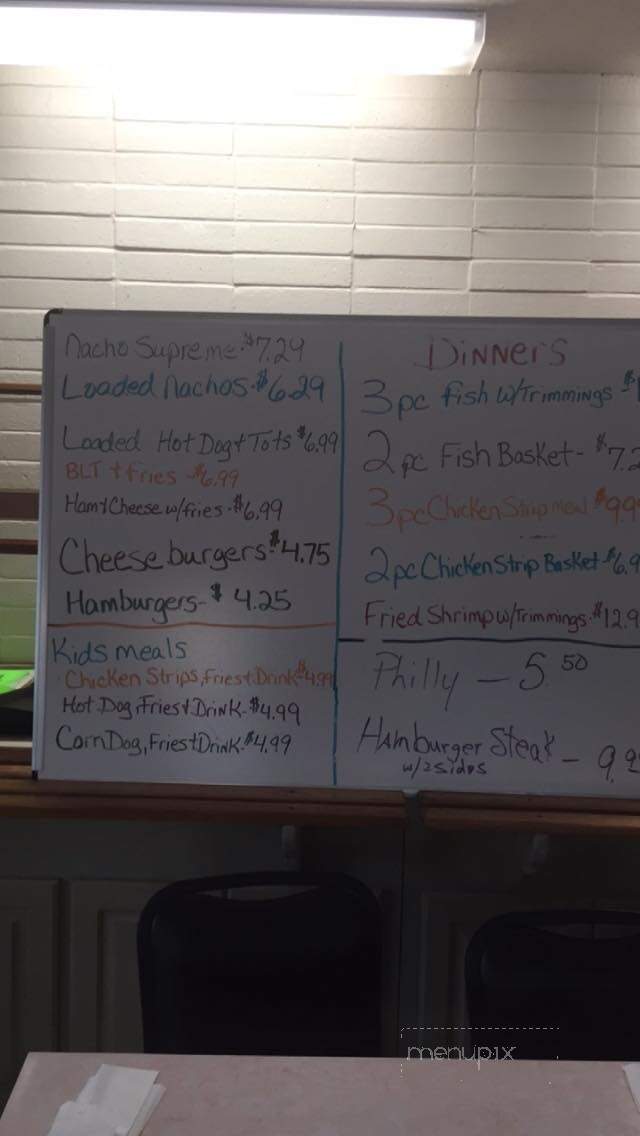 Nacho Supreme-$7.29
Loaded Nachos-$6.29
Loaded Hot Dog + Tots $6.99
BLT + fries -$6.99
Ham + Cheese w/fries-$6.99
Cheese burgers-$4.75
Hamburgers-$4.25
Kids meals
Chicken Strips, Fries + Drink-$4.99
Hot Dog, Fries + Drink-$4.99
Corn Dog, Fries + Drink-$4.99
Dinners
3pc fish w/Trimmings $1
2pc Fish Basket-$7.2
3pc Chicken Strip Meal $9.9
2pc Chicken Strip Basket-$6.9
Fried Shrimp w/Trimmings-$12.9
Philly - 5 50
Hamburger Steak - 9.9
w/2 sides
menupix